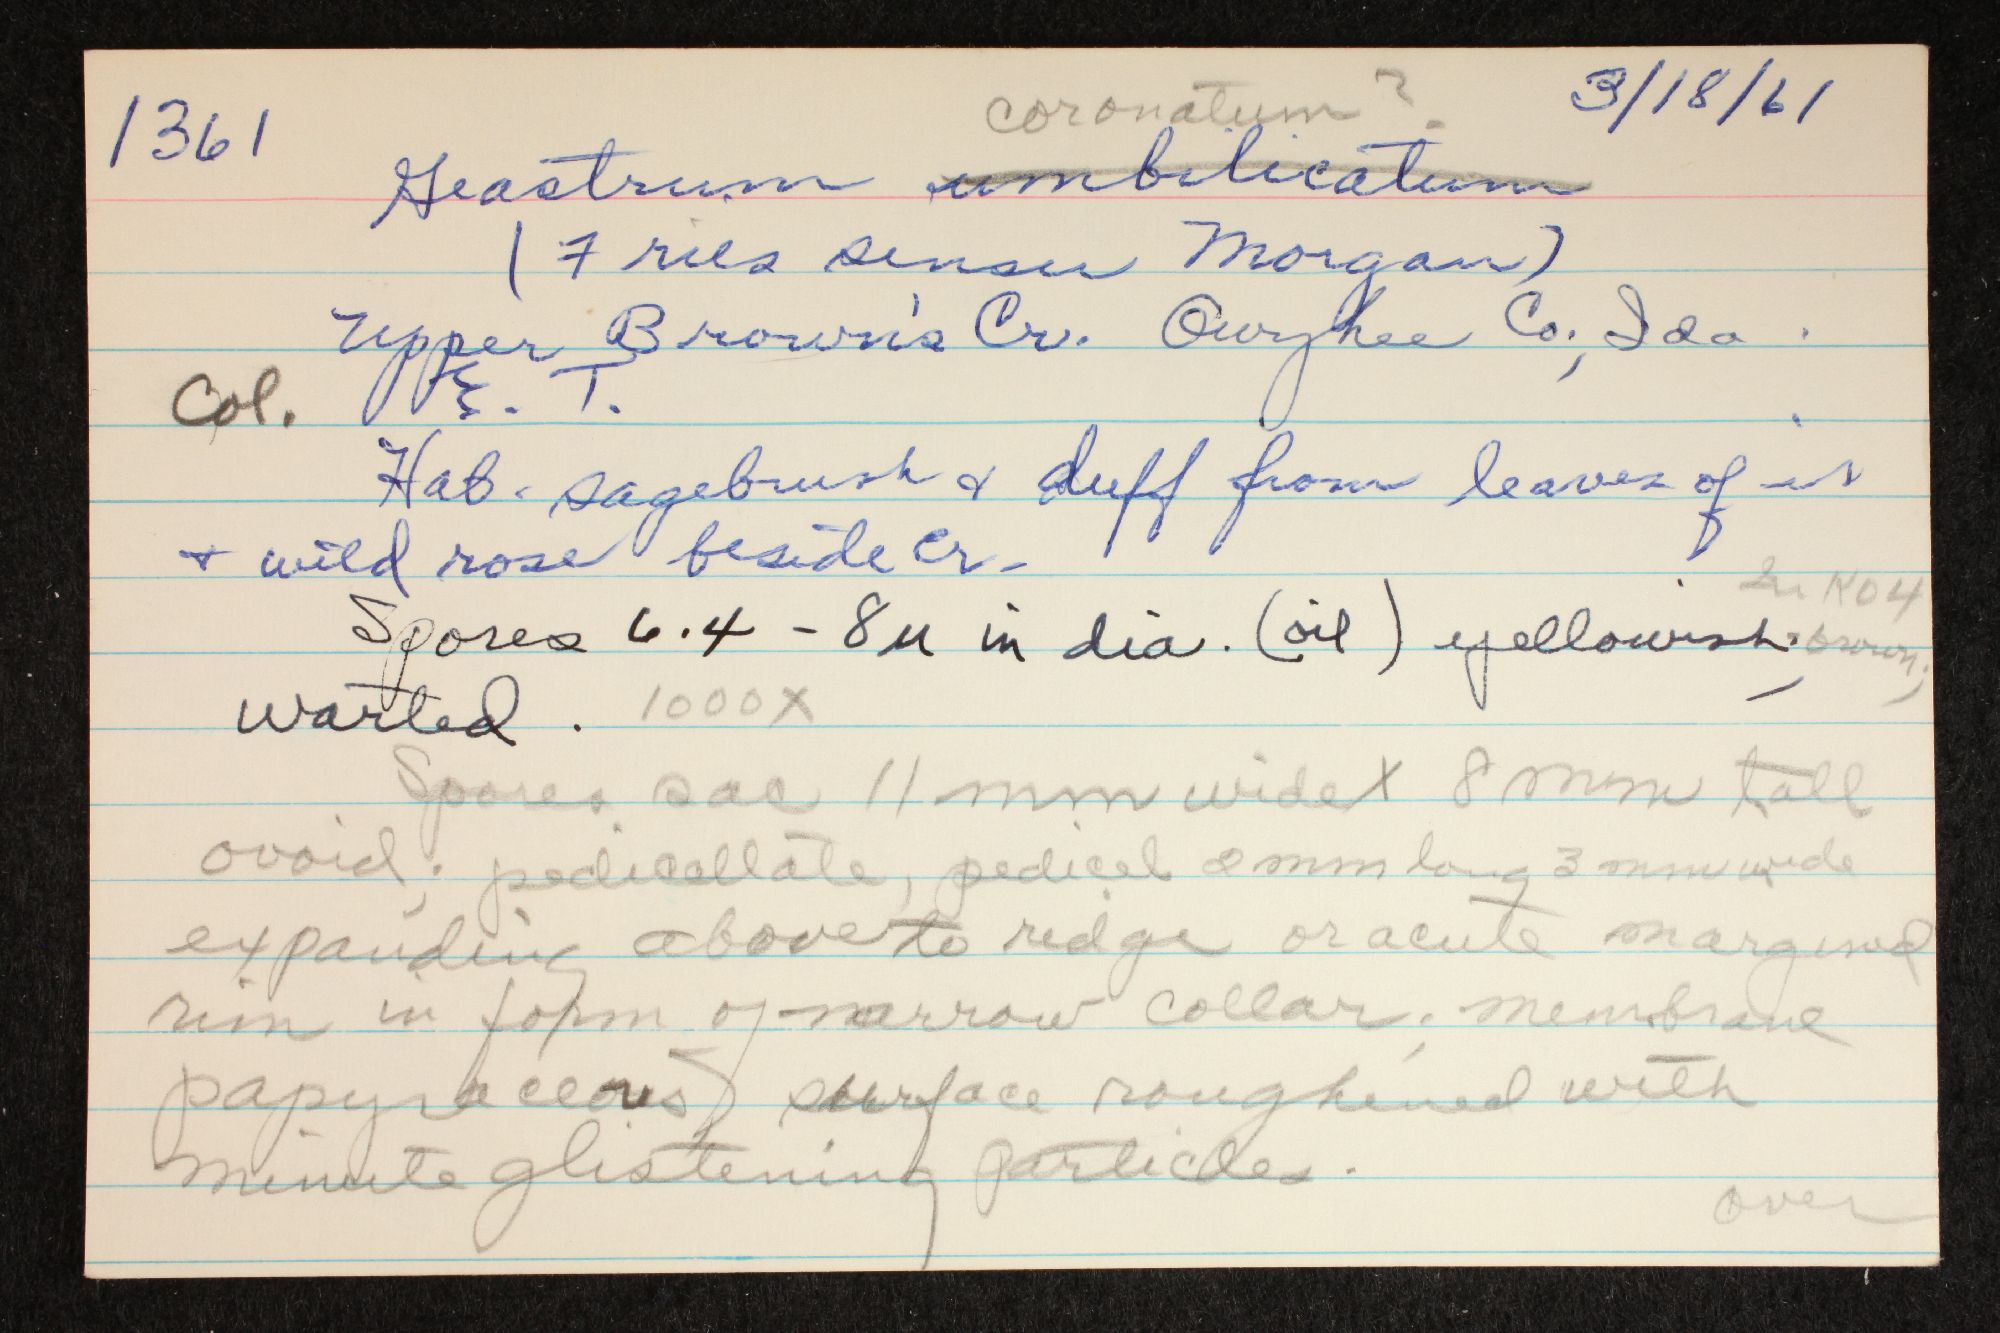 1361
3/18/61
coronatum?
Geastrum umbilicatum
(Fries sensu Morgan)
Upper Brown's Cr. Owyhee Co., Ida.
Col. E. T.
Hab. sagebrush & duff from leaves of it
& wild rose beside Cr.
In KO4
Spores 6.4 - 8u in dia. (oil) yellowish-brown;
warted. 1000X
Spores sac 11 mm wide X 8 mm tall
ovoid; pedicellate, pedicel 2 mm long 3 mm wide
expanding above to ridge or acute margined
rim in form of narrow collar; membrane
papyraceous, surface roughened with
minute glistening particles.
over